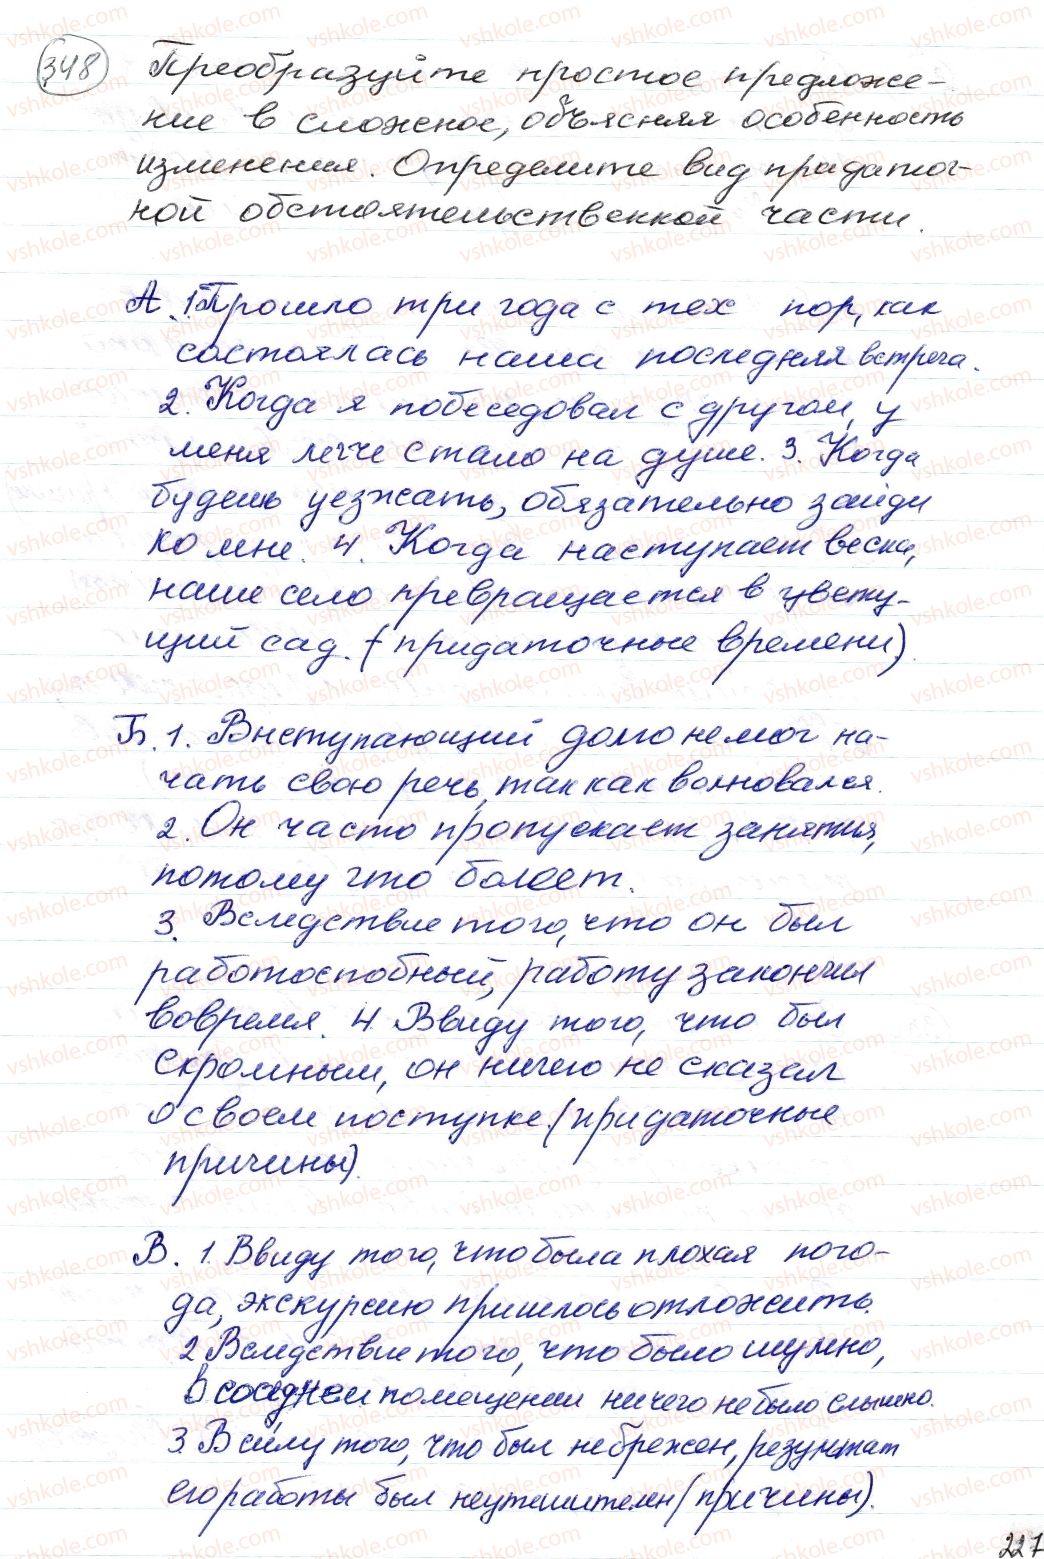 348 Преобразуйте простое предложе-
ние в сложное, объясняя особенность
изменения. Определите вид придаточ-
ной обстоятельственной части.
А. 1. Прошло три года с тех пор, как
состоялась наша последняя встреча.
2. Когда я побеседовал с другом, у
меня легче стало на душе. 3. Когда
будешь уезжать, обязательно зайди
ко мне. 4. Когда наступает весна,
наше село превращается в цвету-
щий сад. (придаточные времени).
Б. 1. Выступающий долго не мог на-
чать свою речь, так как волновался.
2. Он часто пропускает занятия,
потому что болеет.
3. Вследствие того, что он был
работоспобный, работу закончил
вовремя. 4. Ввиду того, что был
скромным, он ничего не сказал
о своем поступке. (придаточные
причины).
В. 1. Ввиду того, что была плохая пого-
да, экскурсию пришлось отложить.
2 Вследствие того, что было шумно,
в соседнем помещении ничего не было слышно.
3 В силу того, что был небрежен, результат
его работы был неутешителен (причины).
227